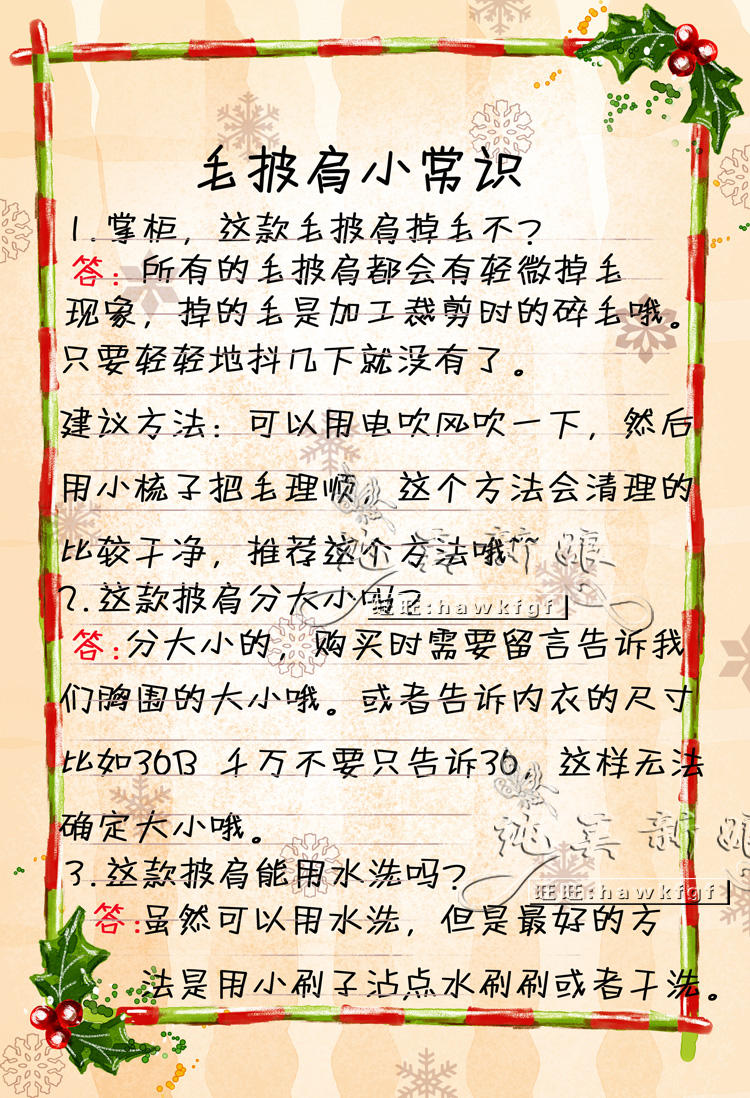 毛披肩小常识
1.掌柜，这款毛披肩掉毛不？
答：所有的毛披肩都会有轻微掉毛
现象，掉的毛是加工裁剪时的碎毛哦。
只要轻轻地抖几下就没有了。
建议方法：可以用电吹风吹一下，然后
用小梳子把毛理顺，这个方法会清理的
比较干净，推荐这个方法哦~~
纯美新娘
2.这款披肩分大小吗？
旺旺:hawkfgf
答:分大小的，购买时需要留言告诉我
们胸围的大小哦。或者告诉内衣的尺寸
比如36B 千万不要只告诉36，这样无法
确定大小哦。
纯美新娘
3.这款披肩能用水洗吗？
旺旺:hawkfgf
答:虽然可以用水洗，但是最好的方
法是用小刷子沾点水刷刷或者干洗。